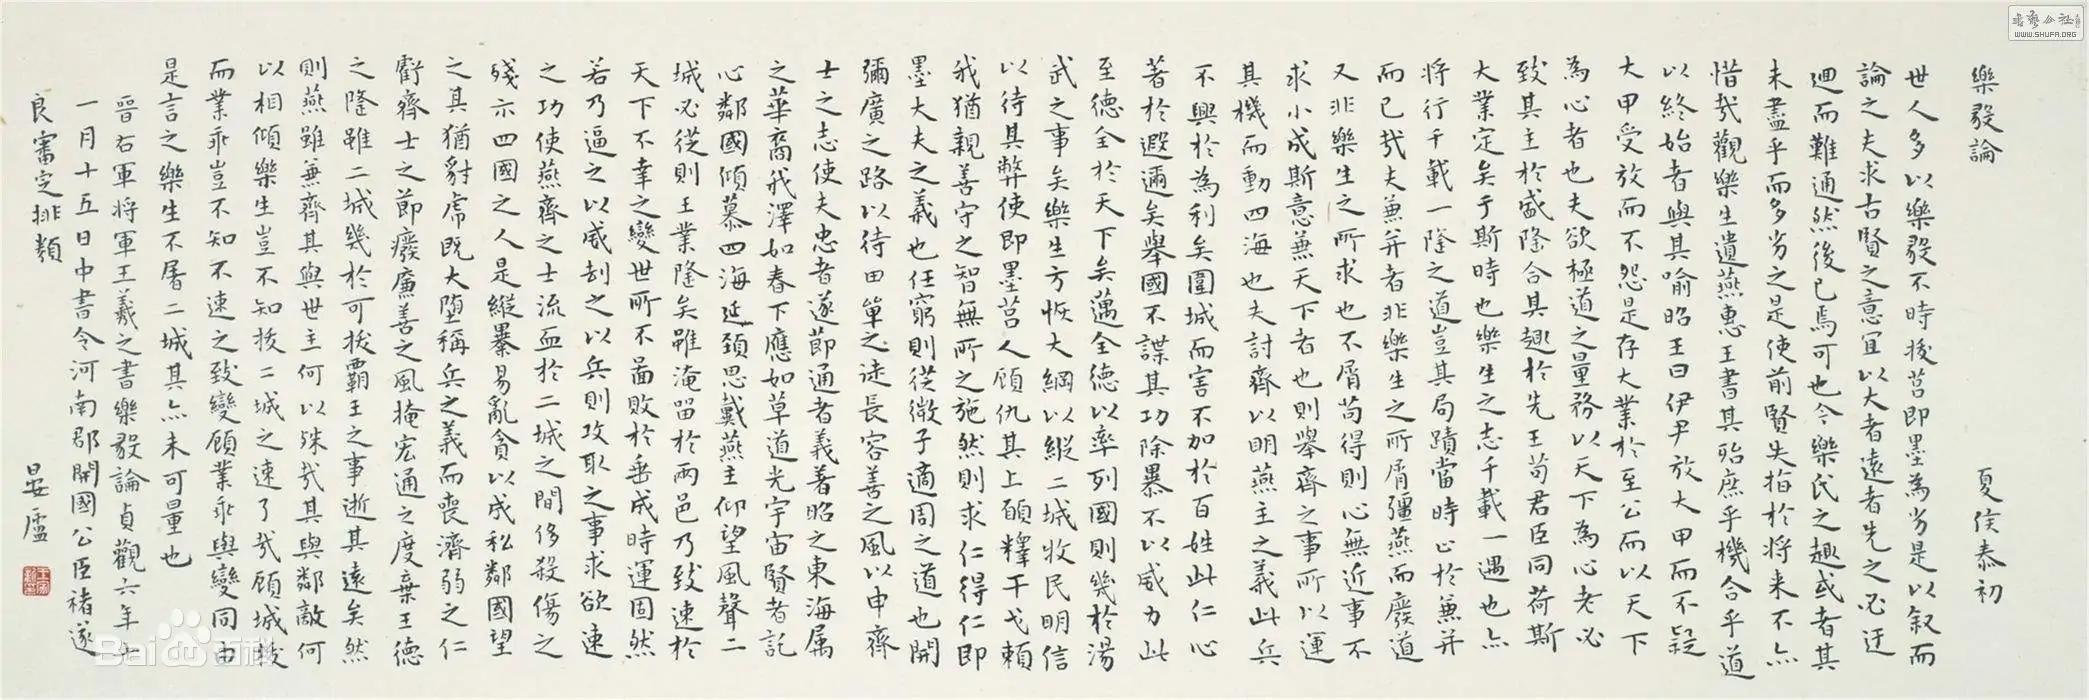 樂毅論 夏侯泰初
世人多以樂毅不時拔莒即墨為劣是以叙而
論之夫求古賢之意宜以大者遠者先之必迂
迴而難通然後已焉可也今樂氏之趣或者其
未盡乎而多劣之是使前賢失指於将来不亦
惜哉觀樂生遺燕惠王書其殆庶乎機合乎道
以終始者與其喻昭王曰伊尹放大甲而不疑
大甲受放而不怨是存大業於至公而以天下
為心者也夫欲極道之量務以天下為心者必
致其主於盛隆合其趣於先王苟君臣同荷斯
大業定矣于斯時也樂生之志千載一遇也亦
将行千載一隆之道豈其局蹟當時止於兼并
而已哉夫兼并者非樂生之所屑彊燕而廢道
又非樂生之所求也不屑苟得則心無近事不
求小成斯意兼天下者也則舉齊之事所以運
其機而動四海也夫討齊以明燕主之義此兵
不興於為利矣圍城而害不加於百姓此仁心
著於遐邇矣舉國不謀其功除暴不以威力此
至德全於天下矣邁全德以率列國則幾於湯
武之事矣樂生方恢大綱以縱二城牧民明信
以待其弊使即墨莒人顧仇其上願釋干戈賴
我猶親善守之智無所之施然則求仁得仁即
墨大夫之義也任窮則從微子適周之道也開
彌廣之路以待田單之徒長容善之風以申齊
士之志使夫忠者遂節通者義著昭之東海属
之華裔我澤如春下應如草道光宇宙賢者託
心鄰國傾慕四海延頸思戴燕主仰望風聲二
城必從則王業隆矣雖淹留於兩邑乃致速於
天下不幸之變世所不啚敗於垂成時運固然
若乃逼之以威刧之以兵則攻取之事求欲速
之功使燕齊之士流血於二城之間侈殺傷之
殘示四國之人是縱暴易亂貪以成私鄰國望
之其猶豺虎既大堕稱兵之義而喪濟弱之仁
虧齊士之節癈廉善之風掩宏通之度棄王德
之隆雖二城幾於可拔霸王之事逝其遠矣然
則燕雖無齊其與世主何以殊哉其與鄰敵何
以相傾樂生豈不知拔二城之速了哉顧城拔
而業乖豈不知不速之致變顧業乖與變同由
是言之樂生不屠二城其亦未可量也
晉右軍将軍王羲之書樂毅論貞觀六年十
一月十五日中書令河南郡開國公臣褚遂
良審定排類 晏廬
書藝公社
WWW.SHUFA.ORG
Bai百科